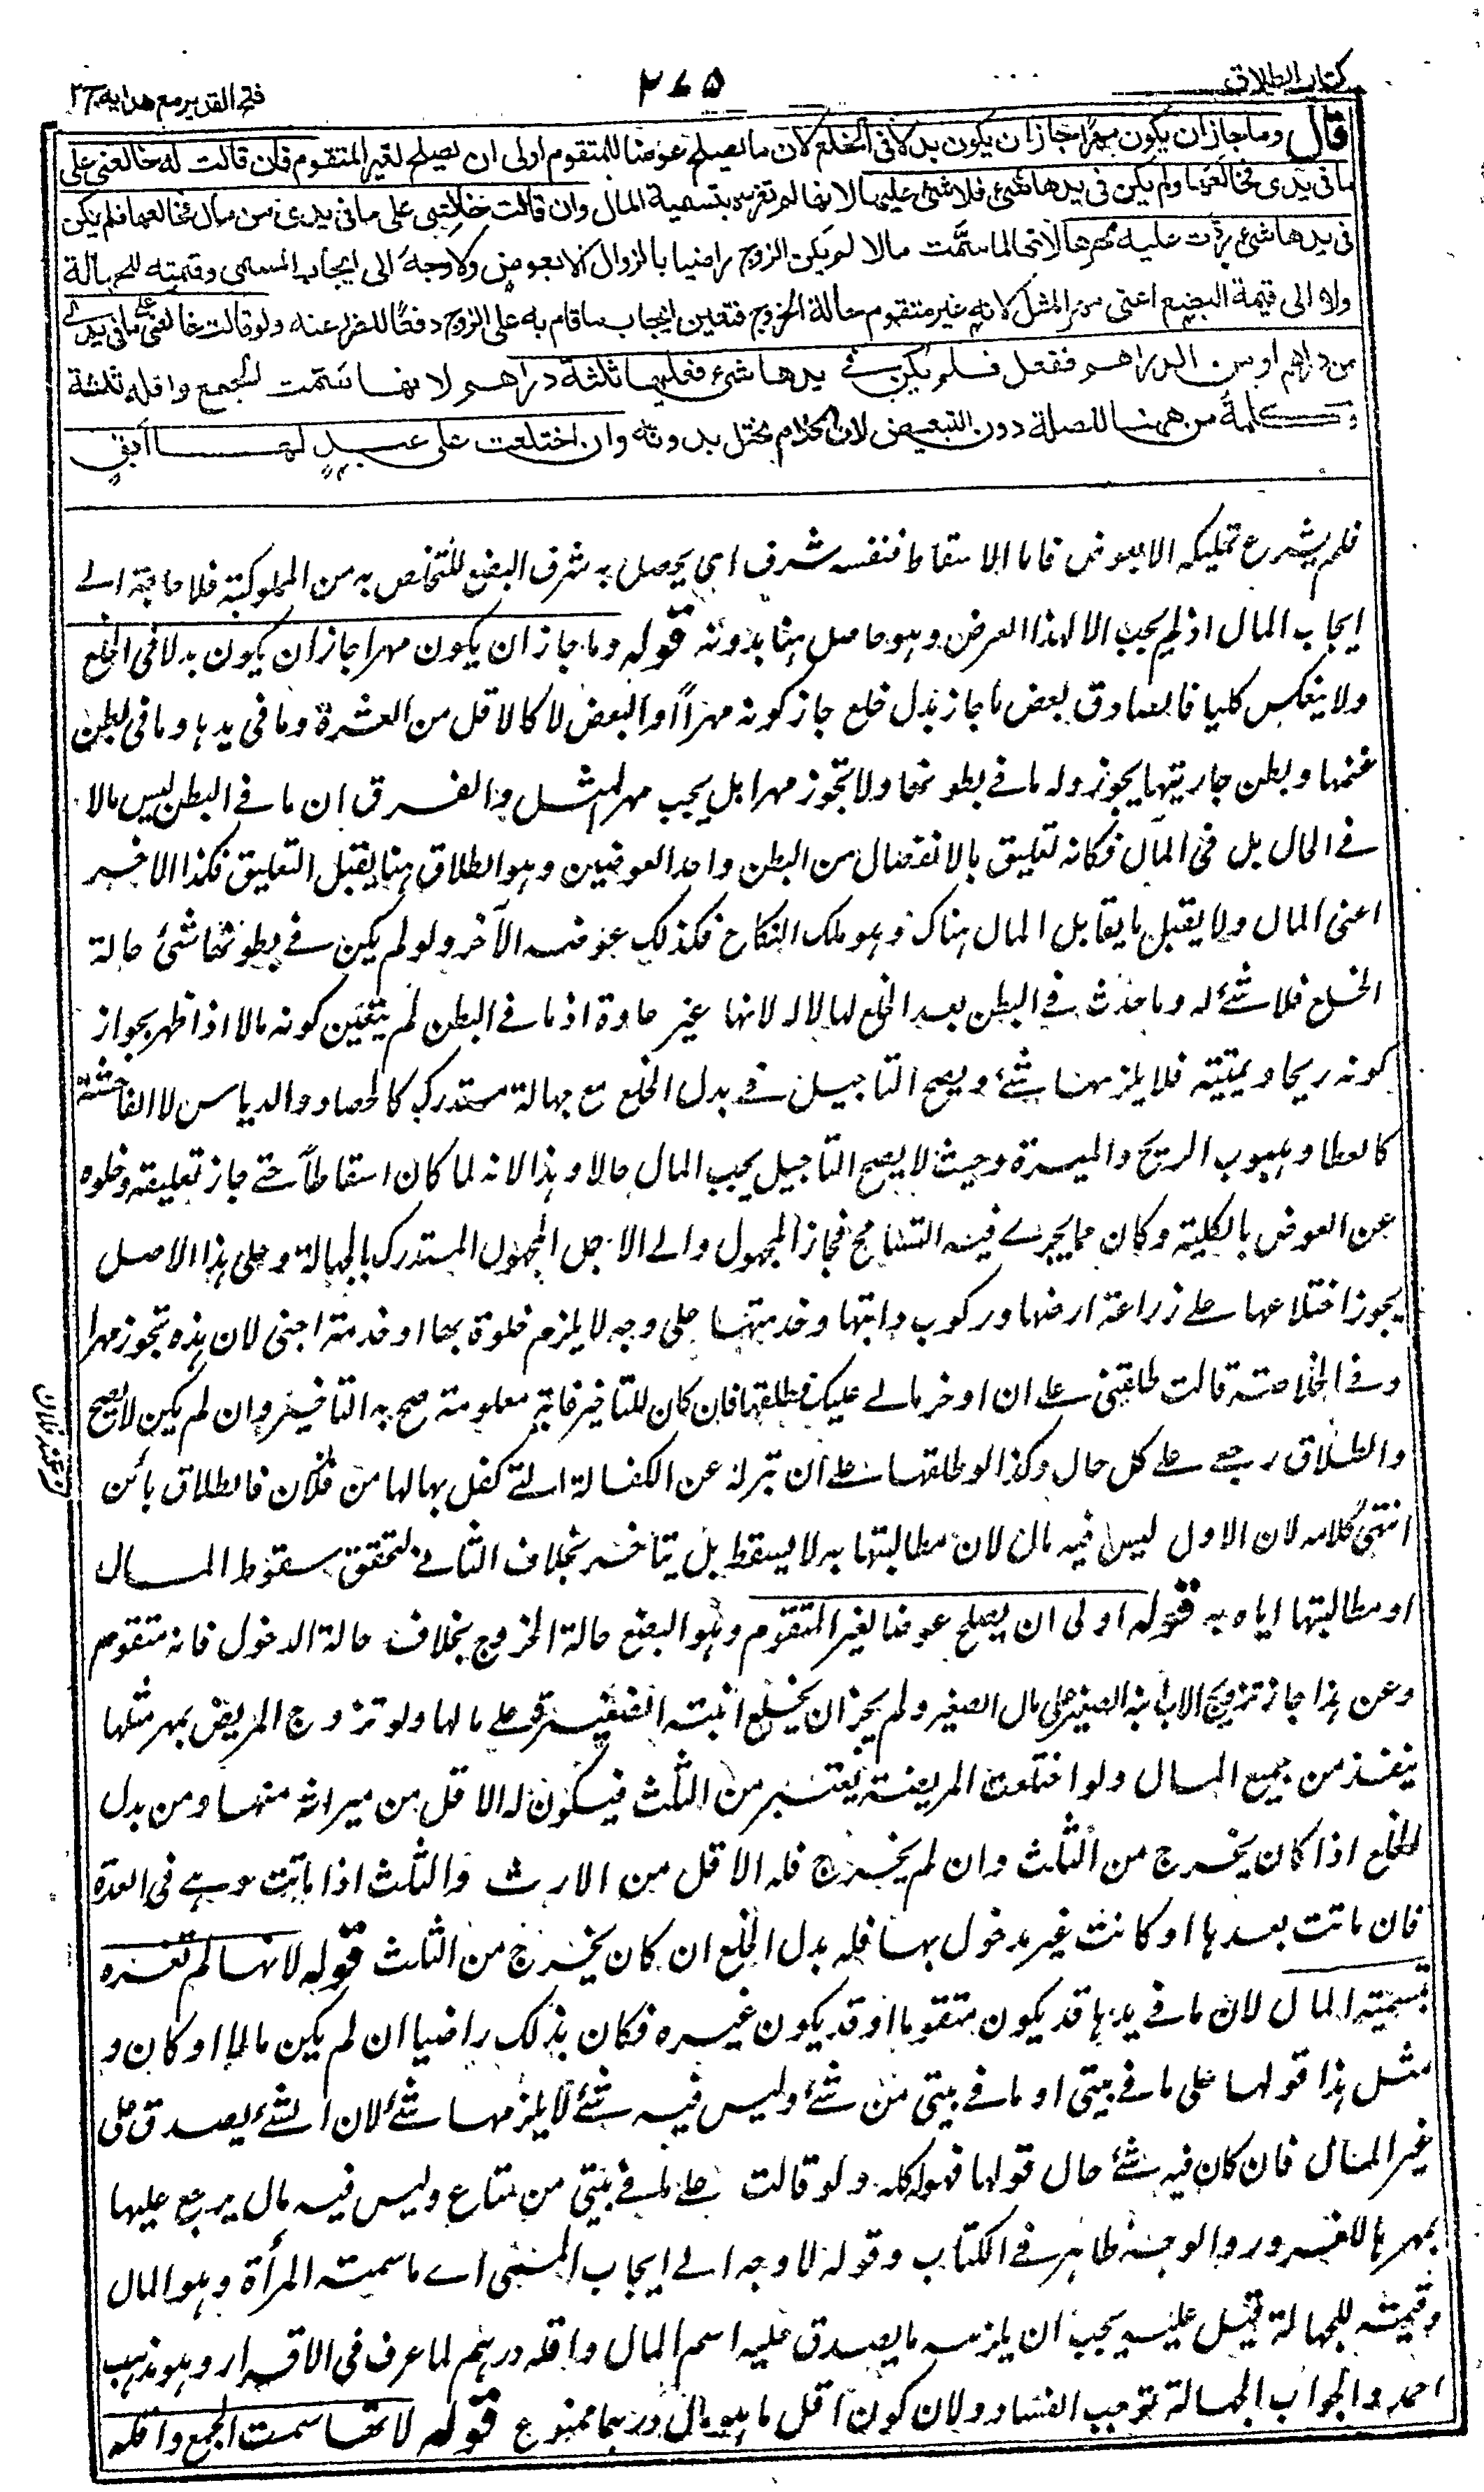 كتاب الطلاق
٢٧٥
فتح القدير مع هدايه ج٢
قال وما جاز ان يكون مهرا جاز ان يكون بدلا فى الخلع لان ما يصلح عوضا للمتقوم اولى ان يصلح لغير المتقوم فان قالت له خالعنى على
ما فى يدى فخالعها ولم يكن فى يدها شئ فلا شئ عليها لانها لم تغره بتسمية المال وان قالت خالعنى على ما فى يدى من مال فخالعها فلم يكن
فى يدها شئ ردت عليه مهرها لانها لما سمت مالا لم يكن الزوج راضيا بالزوال الا بعوض ولا وجه الى ايجاب المسمى وقيمته للجهالة
ولا الى قيمة البضع اعنى مهر المثل لانه غير متقوم حالة الخروج فتعين ايجاب ما قام به على الزوج دفعا للضرر عنه ولو قالت خالعنى على ما فى يدى
من دراهم او من الدراهم ففعل فلم يكن فى يدها شئ فعليها ثلثة دراهم لانها سمت الجمع واقله ثلثة
وكلمة من ههنا للصلة دون التبعيض لان الكلام يختل بدونه وان اختلعت على عبد لها آبق
فلم يشرع تمليكه الا بعوض فاما الاسقاط فنفسه شرف اى يحصل به شرف البضع للتخلص به من المملوكية فلا حاجة الے
ايجاب المال اذ لم يجب الا لهذا الغرض وهو حاصل هنا بدونه قوله وما جاز ان يكون مهرا جاز ان يكون بدلا فى الخلع
ولا ينعكس كليا فالصادق بعض ما جاز بدل خلع جاز كونه مهراً او البعض لا كالاقل من العشرة وما فى يدها وما فى بطن
غنمها وبطن جاريتها يجوز وله ما فے بطونها ولا تجوز مهرا بل يجب مهر المثل والفرق ان ما فے البطن ليس مالا
فے الحال بل فى المآل فكانه تعليق بالانفصال من البطن واحد العوضين وهو الطلاق هنا يقبل التعليق فكذا الاخر
اعنى المال ولا يقبل ما يقابل المال هناك وهو ملك النكاح فكذلك عوضه الآخر ولو لم يكن فے بطونها شئ حالة
الخلع فلا شئ له وما حدث فے البطن بعد الخلع لها لا له لانها غير غارة اذ ما فے البطن لم يتعين كونه مالا اذا ظهر بجواز
كونه ريحا وميتة فلا يلزمها شئ ويصح التاجيل فے بدل الخلع مع جهالة مستدركة كالحصاد والدياس لا الفاحشة
كالعطا وهبوب الريح والميسرة وحيث لا يصح التاجيل يجب المال حالا وهذا لانه لما كان اسقاطاً حتے جاز تعليقه وخلوه
عن العوض بالكلية وكان مما يجرے فيه التسامح فجاز المجهول والے الاجل المجهول المستدرك بالجهالة وعلى هذا الاصل
يجوز اختلاعها علے زراعة ارضها وركوب دابتها وخدمتها على وجه لا يلزم خلوة بها او خدمة اجنبى لان هذه تجوز مهرا
وفے الخلاصة قالت طلقنى علے ان اوخر مالے عليك فطلقها فان كان للتاخير غاية معلومة صح به التاخير وان لم يكن لا يصح
والطلاق رجعے علے كل حال وكذا لو طلقها علے ان تبرئه عن الكفالة التے كفل بها لها من فلان فالطلاق بائن
انتهى كلامه لان الاول ليس فيه مال لان مطالبتها به لا يسقط بل يتاخر بخلاف الثانے لتحقق سقوط المال
او مطالبتها اياه به قوله اولى ان يصلح عوضا لغير المتقوم وهو البضع حالة الخروج بخلاف حالة الدخول فانه متقوم
وعن هذا جاز تزويج الاب ابنه الصغير على مال الصغير ولم يجز ان يخلع ابنته الصغيرة علے مالها ولو تزوج المريض بمهر مثلها
ينفذ من جميع المال ولو اختلعت المريضة يعتبر من الثلث فيكون له الاقل من ميراثه منها ومن بدل
الخلع اذا كان يخرج من الثلث وان لم يخرج فله الاقل من الارث والثلث اذا ماتت وهے فى العدة
فان ماتت بعدها او كانت غير مدخول بها فله بدل الخلع ان كان يخرج من الثلث قوله لانها لم تغره
بتسمية المال لان ما فے يدها قد يكون متقوما او قد يكون غيره فكان بذلك راضيا ان لم يكن مالا او كان و
مثل هذا قولها على ما فے بيتى او ما فے بيتى من شئ وليس فيه شئ لا يلزمها شئ لان الشئ يصدق على
غير المال فان كان فيه شئ حال قولها فهو له كله ولو قالت علے ما فے بيتى من متاع وليس فيه مال يرجع عليها
بمهرها للغرور والوجه ظاهر فے الكتاب وقوله لا وجه الے ايجاب المسمى اے ما سمته المرأة وهو المال
وقيمته للجهالة قيل عليه يجب ان يلزمه ما يصدق عليه اسم المال واقله درهم لما عرف فى الاقرار وهو مذهب
احمد والجواب الجهالة توجب الفساد ولان كون اقل ما هو مال درهما ممنوع قوله لانها سمت الجمع واقله